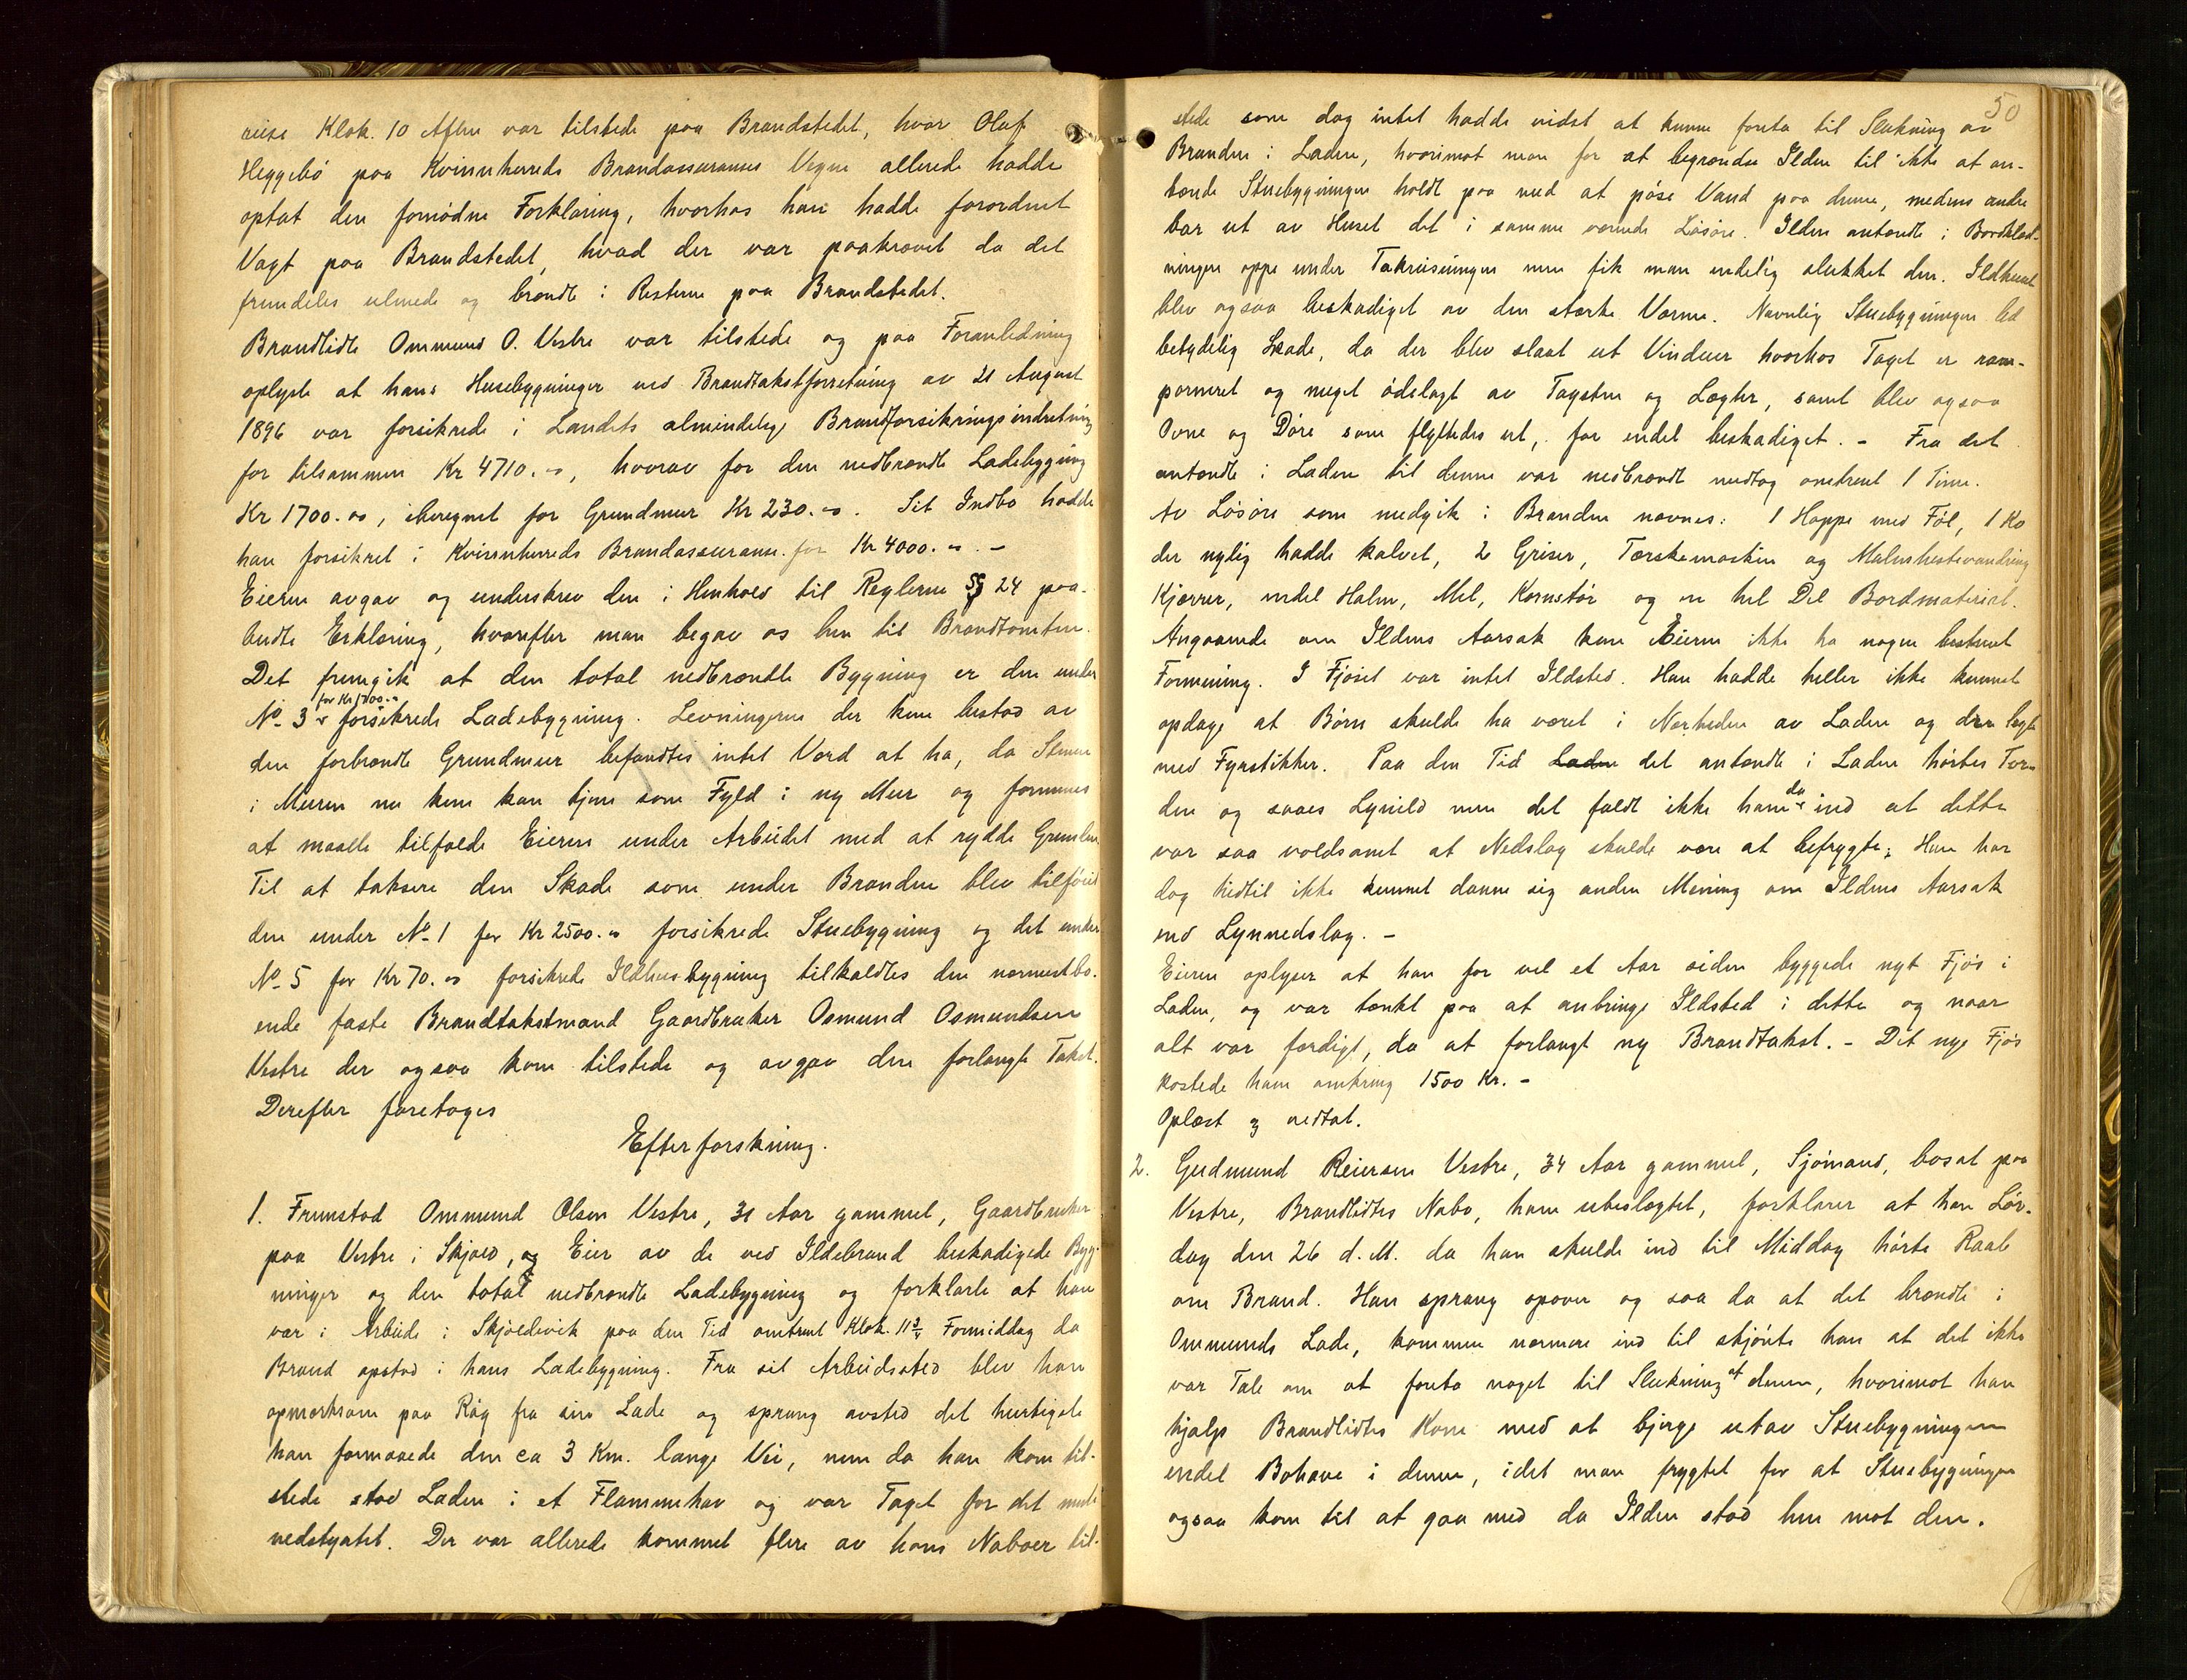 reise Klok. 10 Aften var tilstede paa Brandstedet, hvor Olaf
Heggebö paa Kvinnherreds Brandassuranses Vegne allerede hadde
optat den fornödne Forklaring, hvorhos han hadde forordnet
Vagt paa Brandstedet, hvad der var paakrævet da det
fremdeles ulmede og brændte i Resterne paa Brandstedet.
Brandlidte Ommund O. Vestre var tilstede og paa Foranledning
oplyste at hans Husebygninger ved Brandtakstforretning av 21 August
1896 var forsikrede i Landets almindelige Brandforsikringsindretning
for tilsammen Kr 4710.00, hvorav for den nedbrændte Ladebygning
Kr 1700.00, iberegnet for Grundmur Kr 230.00. Sit Indbo hadde
han forsikret i Kvinnherreds Brandassuranse for Kr 4000.00. -
Eieren avgav og underskrev den i Henhold til Reglerne § 24 paa-
budte Erklæring, hvorefter man begav os hen til Brandtomten.
Det fremgik at den total nedbrændte Bygning er den under
No 3 for Kr 1700.00 forsikrede Ladebygning. Levningerne der kun bestod av
den forbrændte Grundmur befandtes intet Værd at ha, da Stenen
i Muren nu kun kan tjene som Fyld i ny Mur og formenes
at maatte tilfalde Eieren under Arbeidet med at rydde Grunden.
Til at taksere den Skade som under Branden blev tilföiet
den under No 1 for Kr 2500.00 forsikrede Stuebygning og det under
No 5 for Kr 70.00 forsikrede Ildhusbygning tilkaldtes den nærmestbo-
ende faste Brandtakstmand Gaardbruker Osmund Osmundsen
Vestre der ogsaa kom tilstede og avgav den forlangte Takst.
Derefter foretoges
Efterforskning.
1. Fremstod Ommund Olsen Vestre, 31 Aar gammel, Gaardbruker
paa Vestre i Skjold, og Eier av de ved Ildebrand beskadigede Byg-
ninger og den total nedbrændte Ladebygning og forklarte at han
var i Arbeide i Skjoldevik paa den Tid omtrent Klok. 11 3/4 Formiddag da
Brand opstod i hans Ladebygning. Fra sit Arbeidssted blev han
opmerksom paa Røg fra sin Lade og sprang avsted det hurtigste
han formaaede den ca 3 Km. lange Vei, men da han kom til-
stede stod Laden i et Flammehav og var Taget for det meste
nedstyrtet. Der var allerede kommet flere av hans Naboer til-
50
stede som dog intet hadde vidst at kunne foreta til Slukning av
Branden i Laden, hvorimot man for at begrændse Ilden til ikke at an-
tænde Stuebygningen holdt paa med at pöse Vand paa denne, medens andre
bar ut av Huset det i samme værende Lösöre. Ilden antændte i Bordklæd-
ningen oppe under Takreisningen men fik man endelig slukket den. Ildhuset
blev ogsaa beskadiget av den stærke Varme. Navnlig Stuebygningen led
betydelig Skade, da der blev slaat ut Vinduer hvorhos Taget er ram-
poneret og meget ödelagt av Tagsten og Lægter, samt blev ogsaa
Ovne og Döre som flyttedes ut, for endel beskadiget. - Fra det
antændte i Laden til denne var nedbrændt medtog omtrent 1 Time.
Av Lösöre som medgik i Branden nævnes: 1 Hoppe med Föl, 1 Ko
der nylig hadde kalvet, 2 Griser, Tærskemaskin og
Kjærrer, endel Halm, Mel, Kornstör og en hel Del Bordmaterial.
Angaaende om Ildens Aarsak kan Eieren ikke ha nogen bestemt
Formening. I Fjöset var intet Ildsted. Han hadde heller ikke kunnet
opdage at Börn skulde ha været i Nærheden av Laden og der lagt
med Fyrstikker. Paa den Tid Laden det antændte i Laden hörtes Tor-
den og saaes Lynild men det faldt ikke ham da ind at dette
var saa voldsomt at Nedslag skulde være at befrygte; Han har
dog hidtil ikke kunnet danne sig anden Mening om Ildens Aarsak
end Lynnedslag. -
Eieren oplyser at han for vel et Aar siden byggede nyt Fjös i
Laden, og var tænkt paa at anbringe Ildsted i dette og naar
alt var færdigt, da at forlangt ny Brandtakst. - Det nye Fjös
kostede ham omkring 1500 Kr. -
Oplæst og vedtat.
2. Gudmund Reiersen Vestre, 34 Aar gammel, Sjömand, bosat paa
Vestre, Brandlidtes Nabo, ham ubeslægtet, forklarer at han Lör-
dag den 26 d. M. da han skulde ind til Middag hörte Raab
om Brand. Han sprang opover og saa da at det brændte i
Ommunds Lade, kommen nærmere ind til skjönte han at det ikke
var Tale om at foreta noget til Slukning af denne, hvorimot han
hjalp Brandlidtes Kone med at bjerge utav Stuebygningen
endel Bohave i denne, idet man frygtet for at Stuebygningen
ogsaa kom til at gaa med da Ilden stod hen mot den.